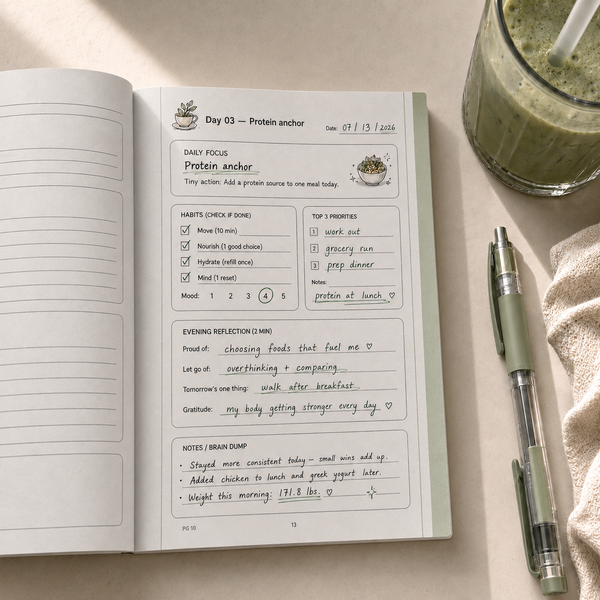 Day 03 — Protein anchor
Date: 07 / 13 / 2026
DAILY FOCUS
Protein anchor
Tiny action: Add a protein source to one meal today.
HABITS (CHECK IF DONE)
Move (10 min)
Nourish (1 good choice)
Hydrate (refill once)
Mind (1 reset)
Mood: 1 2 3 4 5
TOP 3 PRIORITIES
1 work out
2 grocery run
3 prep dinner
Notes:
protein at lunch ♡
EVENING REFLECTION (2 MIN)
Proud of: choosing foods that fuel me ♡
Let go of: overthinking + comparing
Tomorrow's one thing: walk after breakfast
Gratitude: my body getting stronger every day ♡
NOTES / BRAIN DUMP
• Stayed more consistent today — small wins add up.
• Added chicken to lunch and greek yogurt later.
• Weight this morning: 171.8 lbs. ♡
PG 10
13